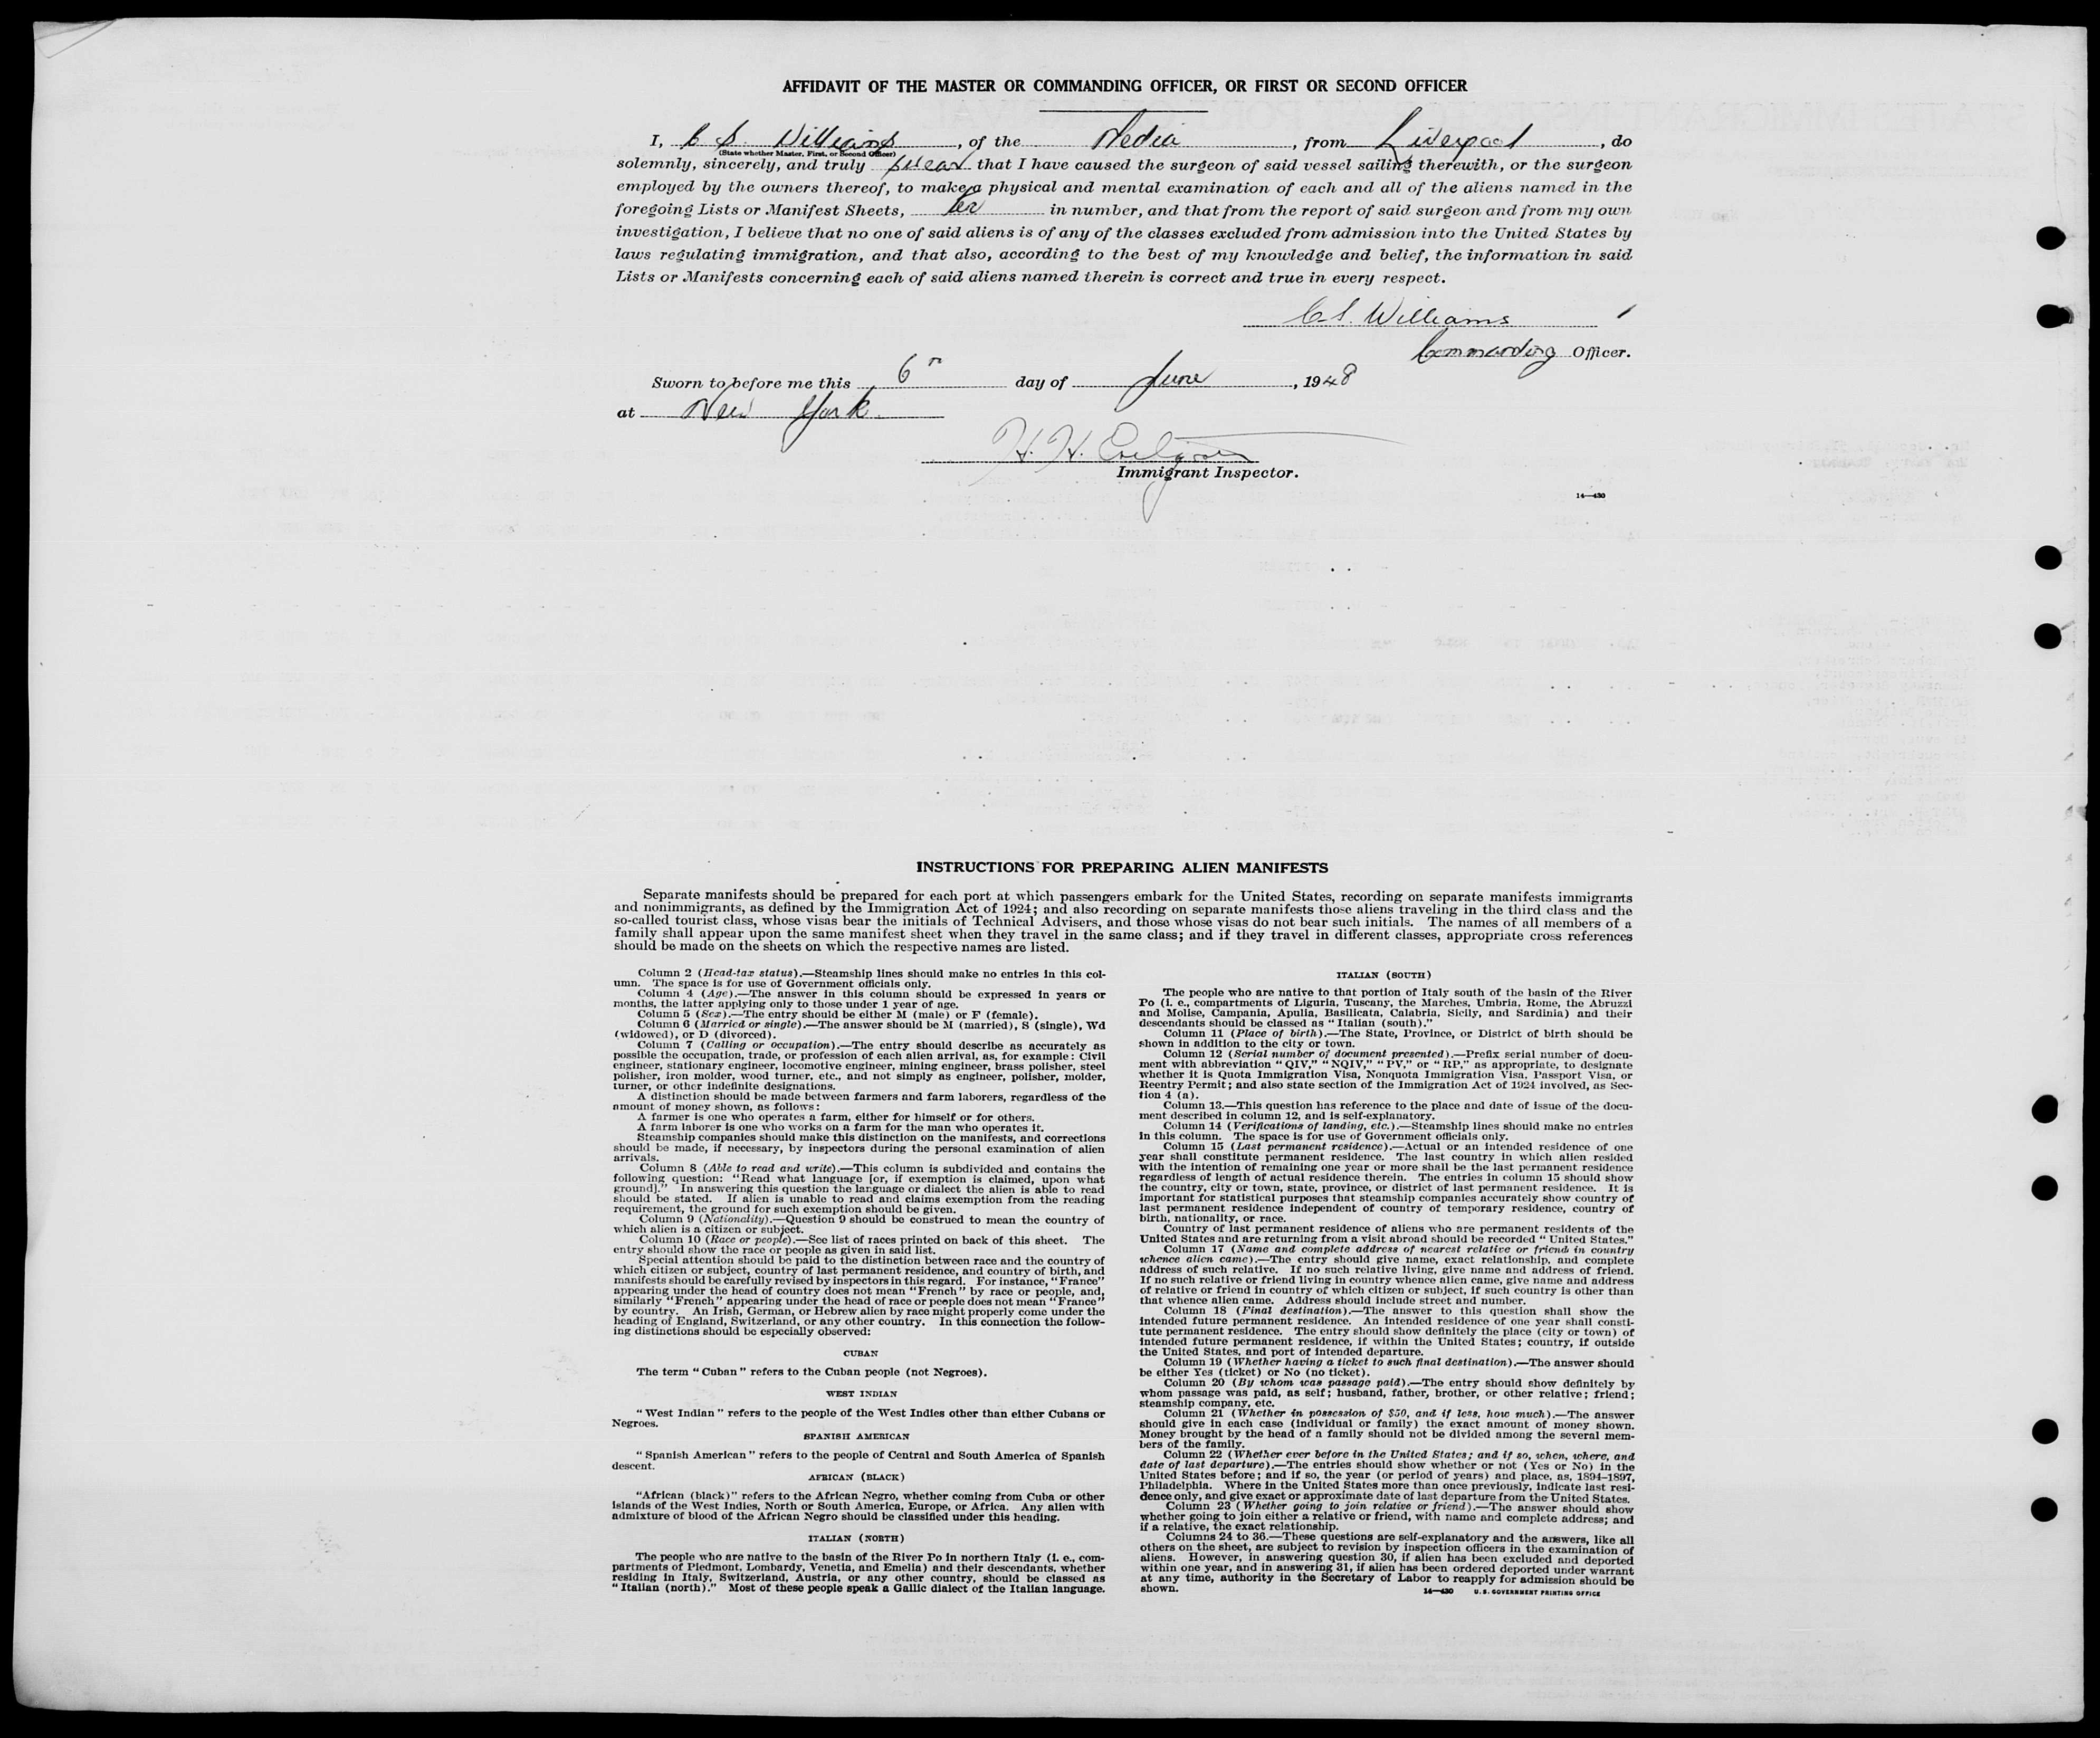 AFFIDAVIT OF THE MASTER OR COMMANDING OFFICER, OR FIRST OR SECOND OFFICER
I, C S. Williams, of the Media, from Liverpool, do
(State whether Master, First, or Second Officer)
solemnly, sincerely, and truly swear that I have caused the surgeon of said vessel sailing therewith, or the surgeon
employed by the owners thereof, to make a physical and mental examination of each and all of the aliens named in the
foregoing Lists or Manifest Sheets, in number, and that from the report of said surgeon and from my own
investigation, I believe that no one of said aliens is of any of the classes excluded from admission into the United States by
laws regulating immigration, and that also, according to the best of my knowledge and belief, the information in said
Lists or Manifests concerning each of said aliens named therein is correct and true in every respect.
C S. Williams
Commanding Officer.
Sworn to before me this 6 day of June, 1948
at New York
H. H.
Immigrant Inspector.
14—430
INSTRUCTIONS FOR PREPARING ALIEN MANIFESTS
Separate manifests should be prepared for each port at which passengers embark for the United States, recording on separate manifests immigrants
and nonimmigrants, as defined by the Immigration Act of 1924; and also recording on separate manifests those aliens traveling in the third class and the
so-called tourist class, whose visas bear the initials of Technical Advisers, and those whose visas do not bear such initials. The names of all members of a
family shall appear upon the same manifest sheet when they travel in the same class; and if they travel in different classes, appropriate cross references
should be made on the sheets on which the respective names are listed.
Column 2 (Head-tax status).—Steamship lines should make no entries in this col-
umn. The space is for use of Government officials only.
Column 4 (Age).—The answer in this column should be expressed in years or
months, the latter applying only to those under 1 year of age.
Column 5 (Sex).—The entry should be either M (male) or F (female).
Column 6 (Married or single).—The answer should be M (married), S (single), Wd
(widowed), or D (divorced).
Column 7 (Calling or occupation).—The entry should describe as accurately as
possible the occupation, trade, or profession of each alien arrival, as, for example: Civil
engineer, stationary engineer, locomotive engineer, mining engineer, brass polisher, steel
polisher, iron molder, wood turner, etc., and not simply as engineer, polisher, molder,
turner, or other indefinite designations.
A distinction should be made between farmers and farm laborers, regardless of the
amount of money shown, as follows:
A farmer is one who operates a farm, either for himself or for others.
A farm laborer is one who works on a farm for the man who operates it.
Steamship companies should make this distinction on the manifests, and corrections
should be made, if necessary, by inspectors during the personal examination of alien
arrivals.
Column 8 (Able to read and write).—This column is subdivided and contains the
following question: "Read what language [or, if exemption is claimed, upon what
ground]." In answering this question the language or dialect the alien is able to read
should be stated. If alien is unable to read and claims exemption from the reading
requirement, the ground for such exemption should be given.
Column 9 (Nationality).—Question 9 should be construed to mean the country of
which alien is a citizen or subject.
Column 10 (Race or people).—See list of races printed on back of this sheet. The
entry should show the race or people as given in said list.
Special attention should be paid to the distinction between race and the country of
which citizen or subject, country of last permanent residence, and country of birth, and
manifests should be carefully revised by inspectors in this regard. For instance, "France"
appearing under the head of country does not mean "French" by race or people, and,
similarly "French" appearing under the head of race or people does not mean "France"
by country. An Irish, German, or Hebrew alien by race might properly come under the
heading of England, Switzerland, or any other country. In this connection the follow-
ing distinctions should be especially observed:
CUBAN
The term "Cuban" refers to the Cuban people (not Negroes).
WEST INDIAN
"West Indian" refers to the people of the West Indies other than either Cubans or
Negroes.
SPANISH AMERICAN
"Spanish American" refers to the people of Central and South America of Spanish
descent.
AFRICAN (BLACK)
"African (black)" refers to the African Negro, whether coming from Cuba or other
islands of the West Indies, North or South America, Europe, or Africa. Any alien with
admixture of blood of the African Negro should be classified under this heading.
ITALIAN (NORTH)
The people who are native to the basin of the River Po in northern Italy (i. e., com-
partments of Piedmont, Lombardy, Venetia, and Emelia) and their descendants, whether
residing in Italy, Switzerland, Austria, or any other country, should be classed as
"Italian (north)." Most of these people speak a Gallic dialect of the Italian language.
ITALIAN (SOUTH)
The people who are native to that portion of Italy south of the basin of the River
Po (i. e., compartments of Liguria, Tuscany, the Marches, Umbria, Rome, the Abruzzi
and Molise, Campania, Apulia, Basilicata, Calabria, Sicily, and Sardinia) and their
descendants should be classed as "Italian (south)."
Column 11 (Place of birth).—The State, Province, or District of birth should be
shown in addition to the city or town.
Column 12 (Serial number of document presented).—Prefix serial number of docu-
ment with abbreviation "QIV," "NQIV," "PV," or "RP," as appropriate, to designate
whether it is Quota Immigration Visa, Nonquota Immigration Visa, Passport Visa, or
Reentry Permit; and also state section of the Immigration Act of 1924 involved, as Sec-
tion 4 (a).
Column 13.—This question has reference to the place and date of issue of the docu-
ment described in column 12, and is self-explanatory.
Column 14 (Verifications of landing, etc.).—Steamship lines should make no entries
in this column. The space is for use of Government officials only.
Column 15 (Last permanent residence).—Actual or an intended residence of one
year shall constitute permanent residence. The last country in which alien resided
with the intention of remaining one year or more shall be the last permanent residence
regardless of length of actual residence therein. The entries in column 15 should show
the country, city or town, state, province, or district of last permanent residence. It is
important for statistical purposes that steamship companies accurately show country of
last permanent residence independent of country of temporary residence, country of
birth, nationality, or race.
Country of last permanent residence of aliens who are permanent residents of the
United States and are returning from a visit abroad should be recorded "United States."
Column 17 (Name and complete address of nearest relative or friend in country
whence alien came).—The entry should give name, exact relationship, and complete
address of such relative. If no such relative living, give name and address of friend.
If no such relative or friend living in country whence alien came, give name and address
of relative or friend in country of which citizen or subject, if such country is other than
that whence alien came. Address should include street and number.
Column 18 (Final destination).—The answer to this question shall show the
intended future permanent residence. An intended residence of one year shall consti-
tute permanent residence. The entry should show definitely the place (city or town) of
intended future permanent residence, if within the United States; country, if outside
the United States, and port of intended departure.
Column 19 (Whether having a ticket to such final destination).—The answer should
be either Yes (ticket) or No (no ticket).
Column 20 (By whom was passage paid).—The entry should show definitely by
whom passage was paid, as self; husband, father, brother, or other relative; friend;
steamship company, etc.
Column 21 (Whether in possession of $50, and if less, how much).—The answer
should give in each case (individual or family) the exact amount of money shown.
Money brought by the head of a family should not be divided among the several mem-
bers of the family.
Column 22 (Whether ever before in the United States; and if so, when, where, and
date of last departure).—The entries should show whether or not (Yes or No) in the
United States before; and if so, the year (or period of years) and place, as, 1894–1897,
Philadelphia. Where in the United States more than once previously, indicate last resi-
dence only, and give exact or approximate date of last departure from the United States.
Column 23 (Whether going to join relative or friend).—The answer should show
whether going to join either a relative or friend, with name and complete address; and
if a relative, the exact relationship.
Columns 24 to 36.—These questions are self-explanatory and the answers, like all
others on the sheet, are subject to revision by inspection officers in the examination of
aliens. However, in answering question 30, if alien has been excluded and deported
within one year, and in answering 31, if alien has been ordered deported under warrant
at any time, authority in the Secretary of Labor to reapply for admission should be
shown.
14—430 U. S. GOVERNMENT PRINTING OFFICE